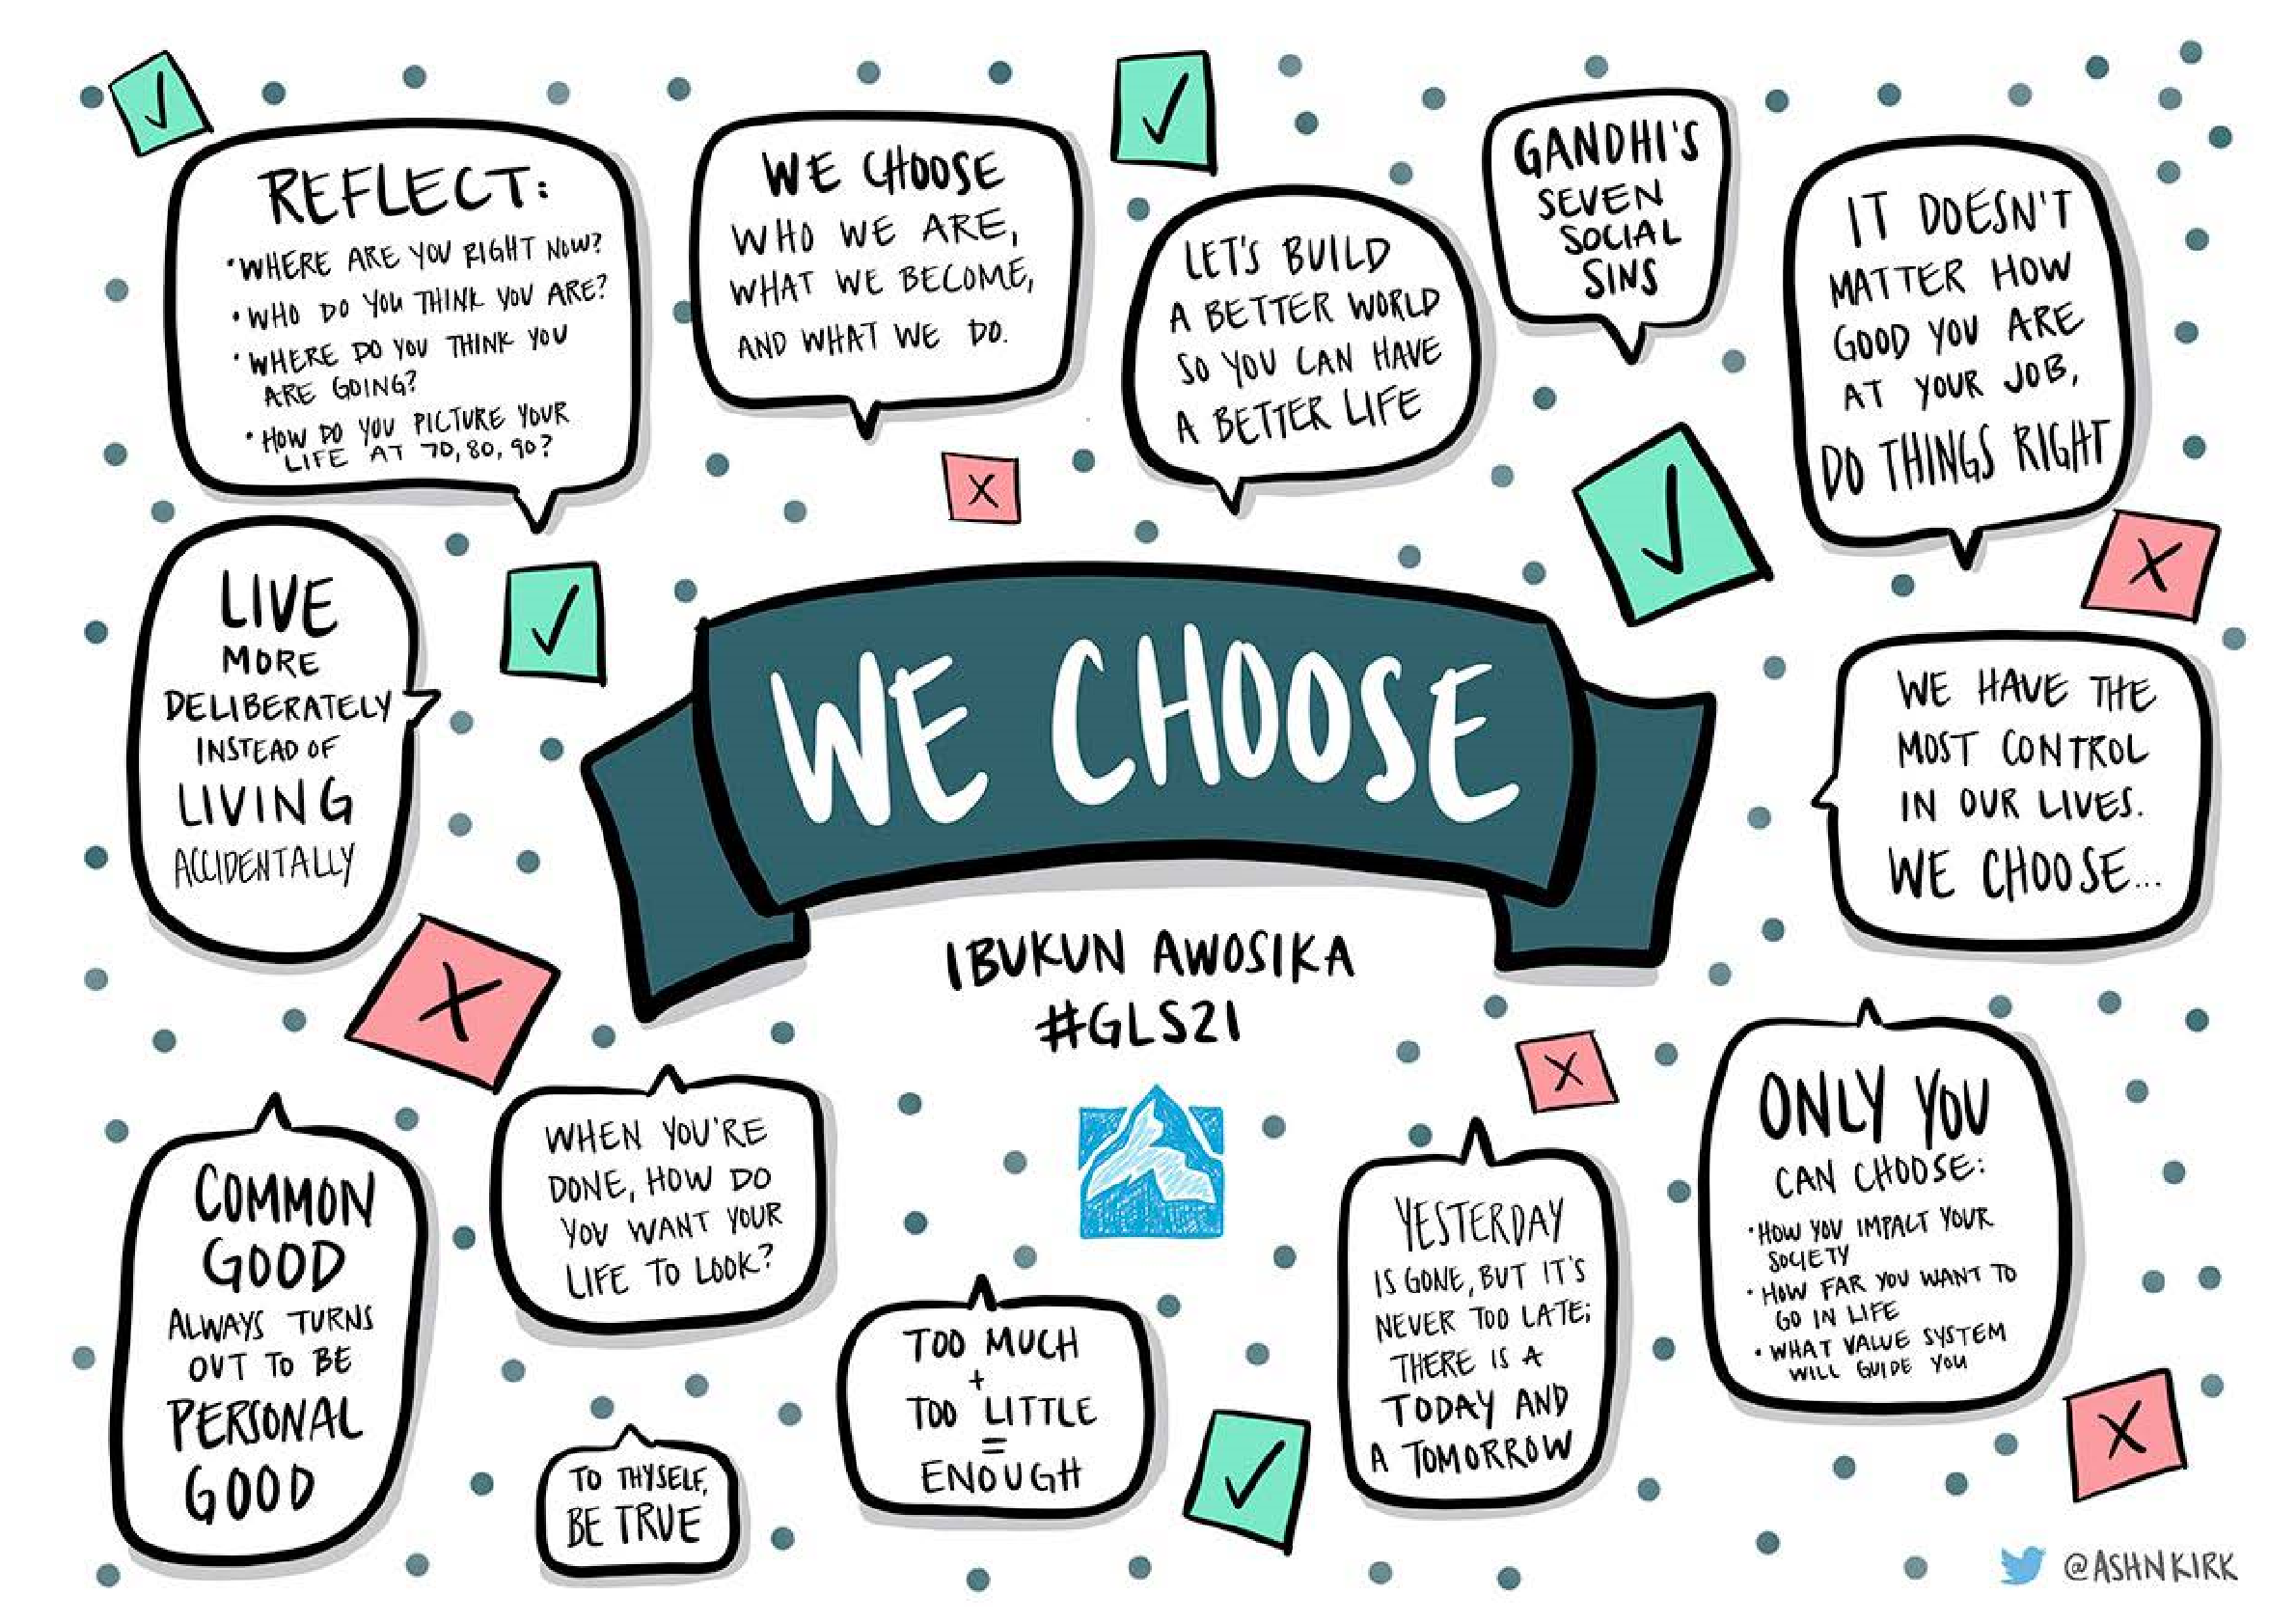 REFLECT:
•WHERE ARE YOU RIGHT NOW?
•WHO DO YOU THINK YOU ARE?
•WHERE DO YOU THINK YOU
ARE GOING?
•HOW DO YOU PICTURE YOUR
LIFE AT 70, 80, 90?
WE CHOOSE
WHO WE ARE,
WHAT WE BECOME,
AND WHAT WE DO.
LET'S BUILD
A BETTER WORLD
SO YOU CAN HAVE
A BETTER LIFE
GANDHI'S
SEVEN
SOCIAL
SINS
IT DOESN'T
MATTER HOW
GOOD YOU ARE
AT YOUR JOB,
DO THINGS RIGHT
LIVE
MORE
DELIBERATELY
INSTEAD OF
LIVING
ACCIDENTALLY
WE CHOOSE
IBUKUN AWOSIKA
#GLS21
WE HAVE THE
MOST CONTROL
IN OUR LIVES.
WE CHOOSE...
COMMON
GOOD
ALWAYS TURNS
OUT TO BE
PERSONAL
GOOD
WHEN YOU'RE
DONE, HOW DO
YOU WANT YOUR
LIFE TO LOOK?
TO THYSELF,
BE TRUE
TOO MUCH
+
TOO LITTLE
=
ENOUGH
YESTERDAY
IS GONE, BUT IT'S
NEVER TOO LATE;
THERE IS A
TODAY AND
A TOMORROW
ONLY YOU
CAN CHOOSE:
•HOW YOU IMPACT YOUR
SOCIETY
•HOW FAR YOU WANT TO
GO IN LIFE
•WHAT VALUE SYSTEM
WILL GUIDE YOU
@ASHNKIRK